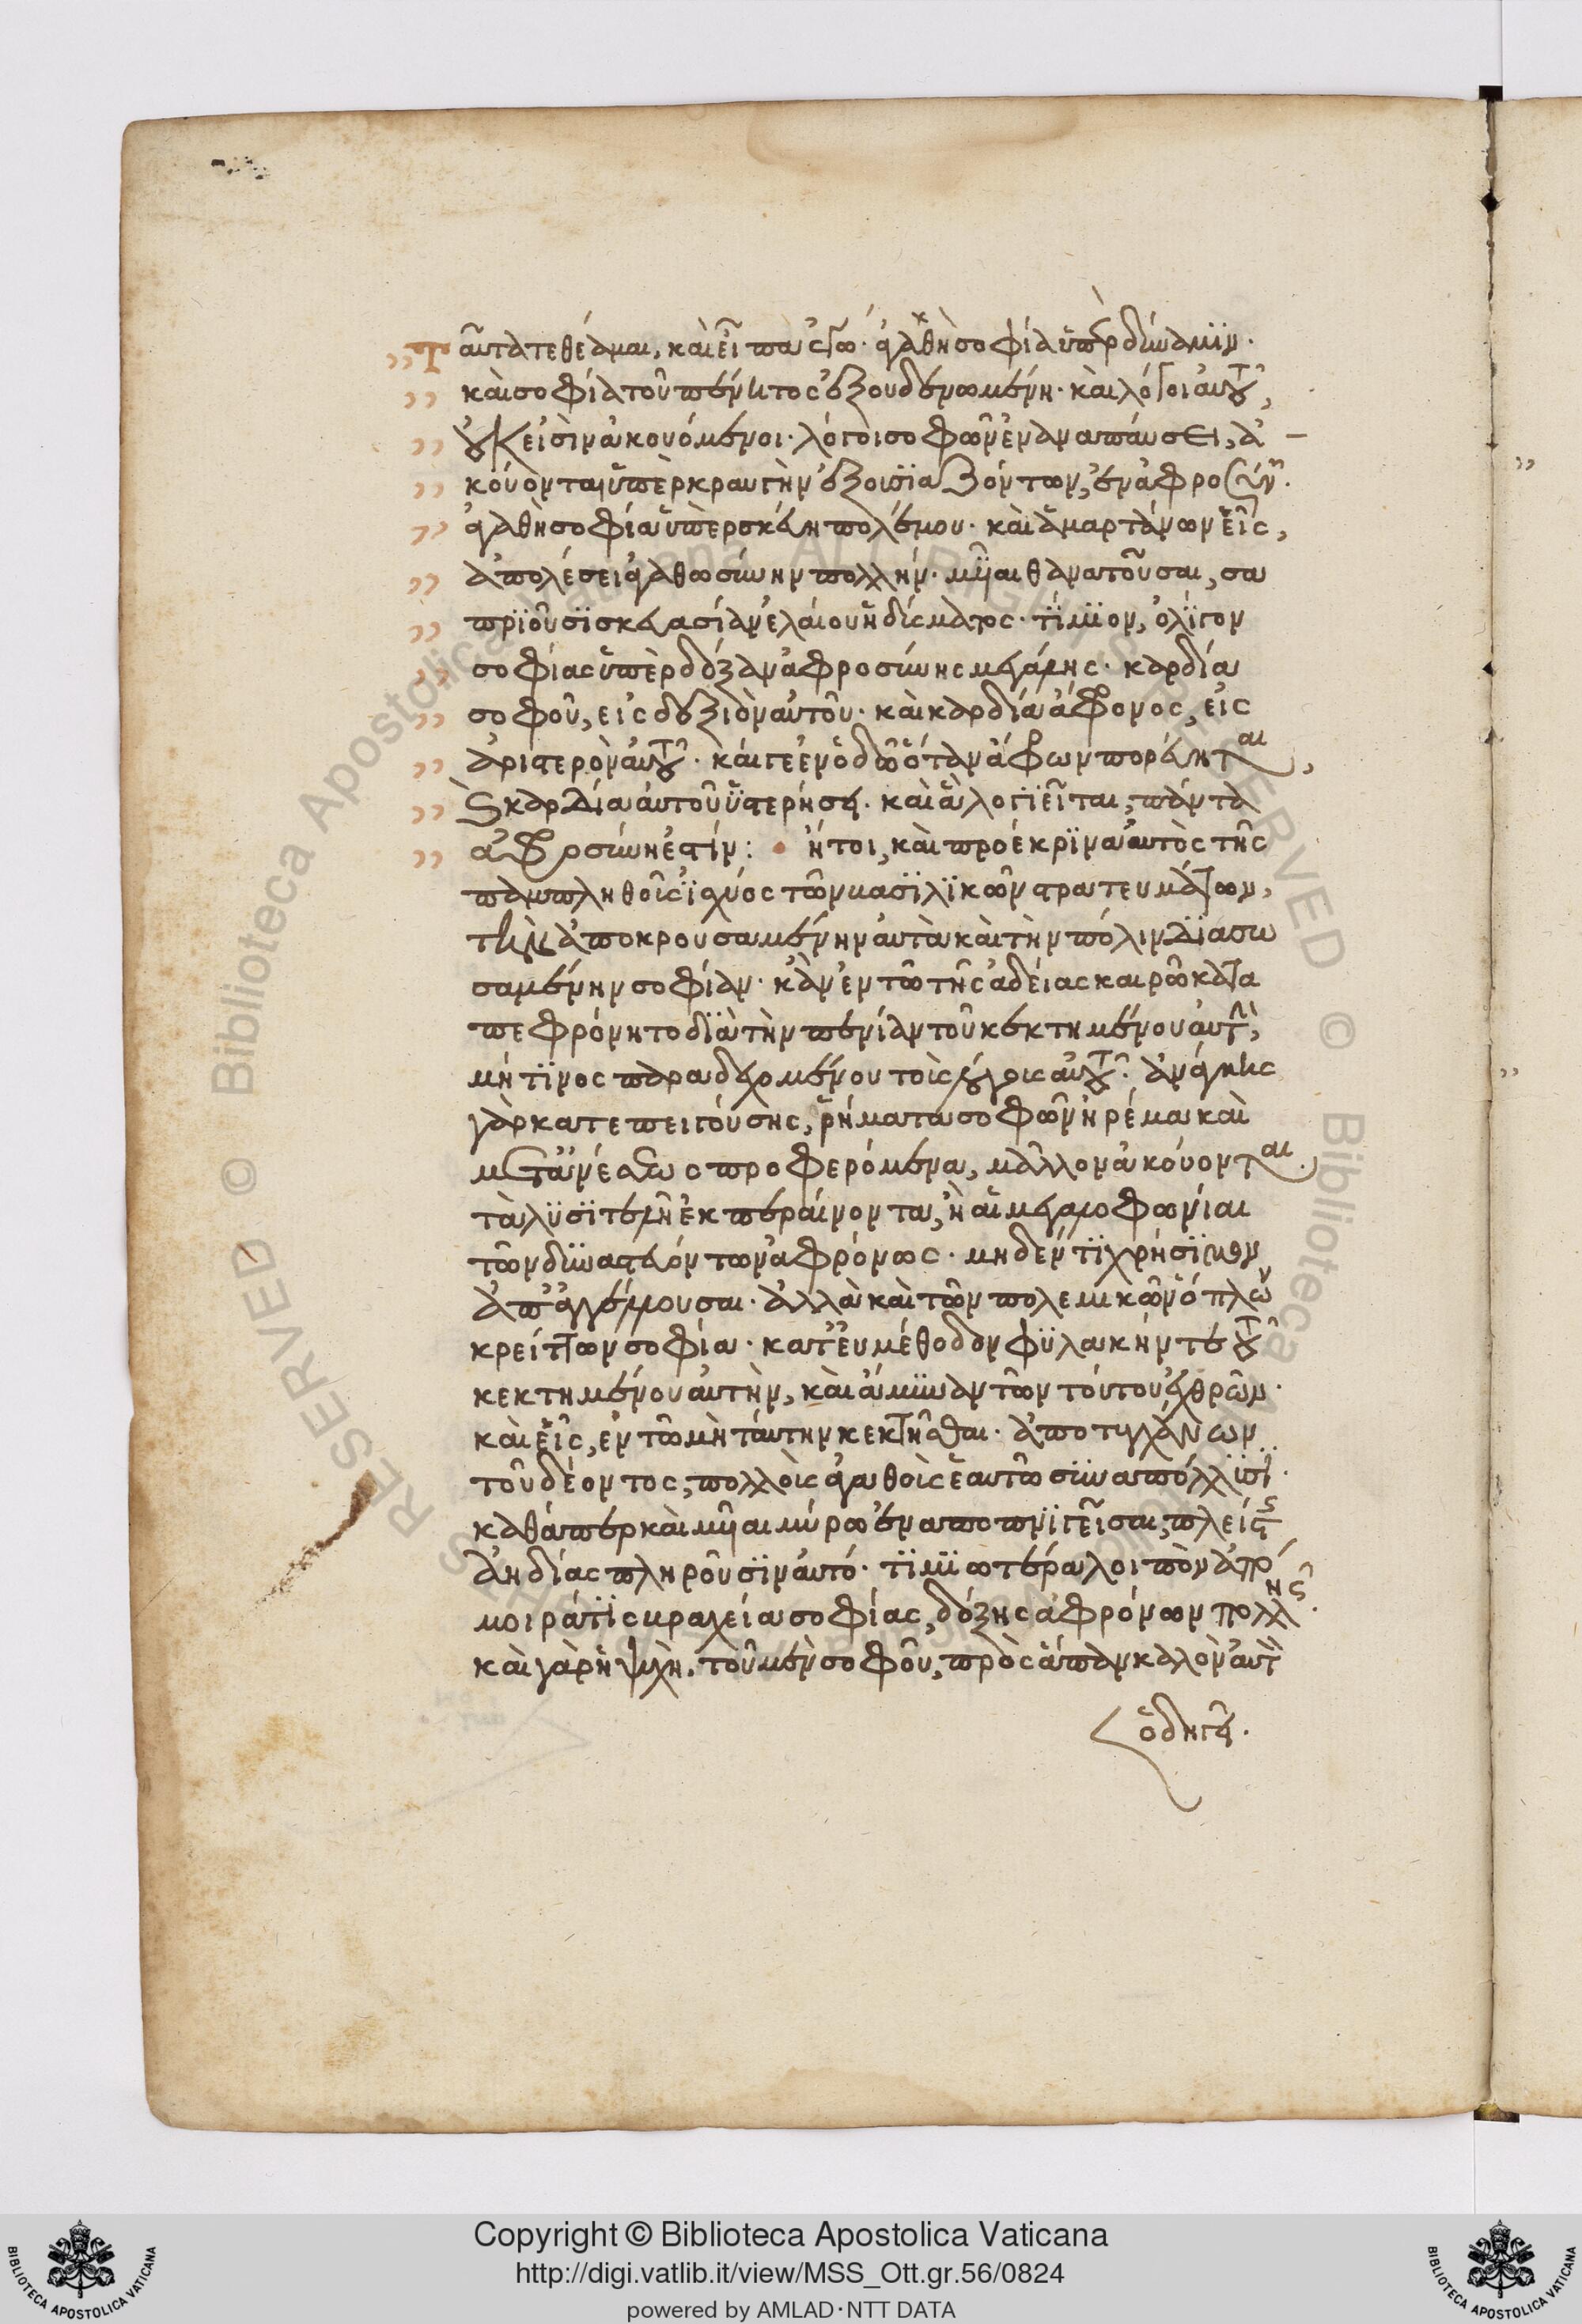 Ταῦτα τεθέαμαι, καὶ εἶπα ἐγώ· ἀγαθὴ σοφία ὑπὲρ δύναμιν·
καὶ σοφία τοῦ πένητος ἐξουδενωμένη· καὶ λόγοι αὐτοῦ,
οὐκ εἰσὶν ἀκουόμενοι· λόγοι σοφῶν ἐν ἀναπαύσει, ἀ
κούονται ὑπὲρ κραυγὴν ἐξουσιαζόντων, ἐν ἀφροσύν·
ἀγαθὴ σοφία ὑπὲρ σκεύη πολέμου· καὶ ἁμαρτάνων εἷς,
ἀπολέσει ἀγαθωσύνην πολλήν· μυῖαι θανατοῦσαι, σα
πριοῦσι σκευασίαν ἐλαίου ἡδύσματος· τίμιον, ὀλίγον
σοφίας ὑπὲρ δόξαν ἀφροσύνης μεγάλης· καρδία
σοφοῦ, εἰς δεξιὸν αὐτοῦ· καὶ καρδία ἄφρονος, εἰς
ἀριστερὸν αὐτοῦ· καί γε ἐν ὁδῷ ὅταν ἄφρων πορεύηται,
καρδία αὐτοῦ ὑστερήσει· καὶ ἃ λογιεῖται, πάντα
ἀφροσύνη ἐστίν: ἤτοι, καὶ προέκρινα αὐτὸς τῆς
παμπληθοῦς ἰσχύος τῶν βασιλικῶν στρατευμάτων,
τὴν ἀποκρουσαμένην αὐτὰ καὶ τὴν πόλιν διασω
σαμένην σοφίαν· κἂν ἐν τῷ τῆς ἀδείας καιρῷ κατα
πεφρόνητο διὰ τὴν πενίαν τοῦ κεκτημένου αὐτὴν,
μή τινος παραδεχομένου τοῖς λόγοις αὐτοῦ· ἀνάγκης
γὰρ κατεπειγούσης, ῥήματα σοφῶν ἠρέμα καὶ
μετ' ἀνέσεως προφερόμενα, μᾶλλον ἀκούονται
τὰ λυσιτελῆ ἐκπεραίνοντα, ἢ αἱ μεγαλοφωνίαι
τῶν δυναστευόντων ἀφρόνως· μηδέν τι χρήσιμον
ἀπαγγέλλουσαι· ἀλλὰ καὶ τῶν πολεμικῶν ὅπλων
κρείττων σοφία· κατ' εὐμέθοδον φυλακήν τε τοῦ
κεκτημένου αὐτὴν, καὶ ἄμυναν τῶν τούτου ἐχθρῶν·
καὶ εἷς, ἐν τῷ μὴ ταύτην κεκτῆσθαι· ἀποτυγχάνων
τοῦ δέοντος, πολλοὺς ἀγαθοὺς ἑαυτῷ συναπόλλυσι·
καθάπερ καὶ μυῖαι μύρῳ ἐναποπνιγεῖσαι, πλείστης
ἀηδίας πληροῦσιν αὐτό· τιμιωτέρα λοιπὸν παρ'
μοιρά τις βραχεῖα σοφίας, δόξης ἀφρόνων πολλῆς·
καὶ γὰρ ἡ ψυχὴ, τοῦ μὲν σοφοῦ, πρὸς ἅπαν καλὸν αὐτὸν
ὁδηγεῖ·
Copyright © Biblioteca Apostolica Vaticana
http://digi.vatlib.it/view/MSS_Ott.gr.56/0824
powered by AMLAD·NTT DATA